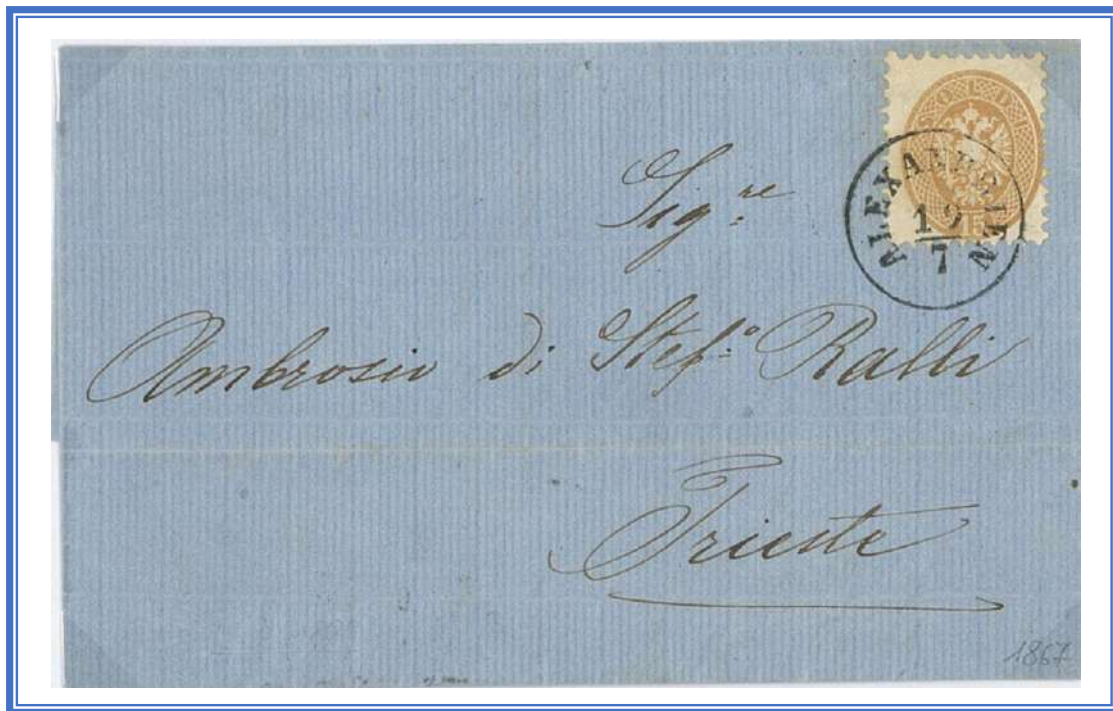 SOLDI
15
ALEXANDRIEN
19
7
Sig.re
Ambrosio di Stef.o Ralli
Trieste
1867